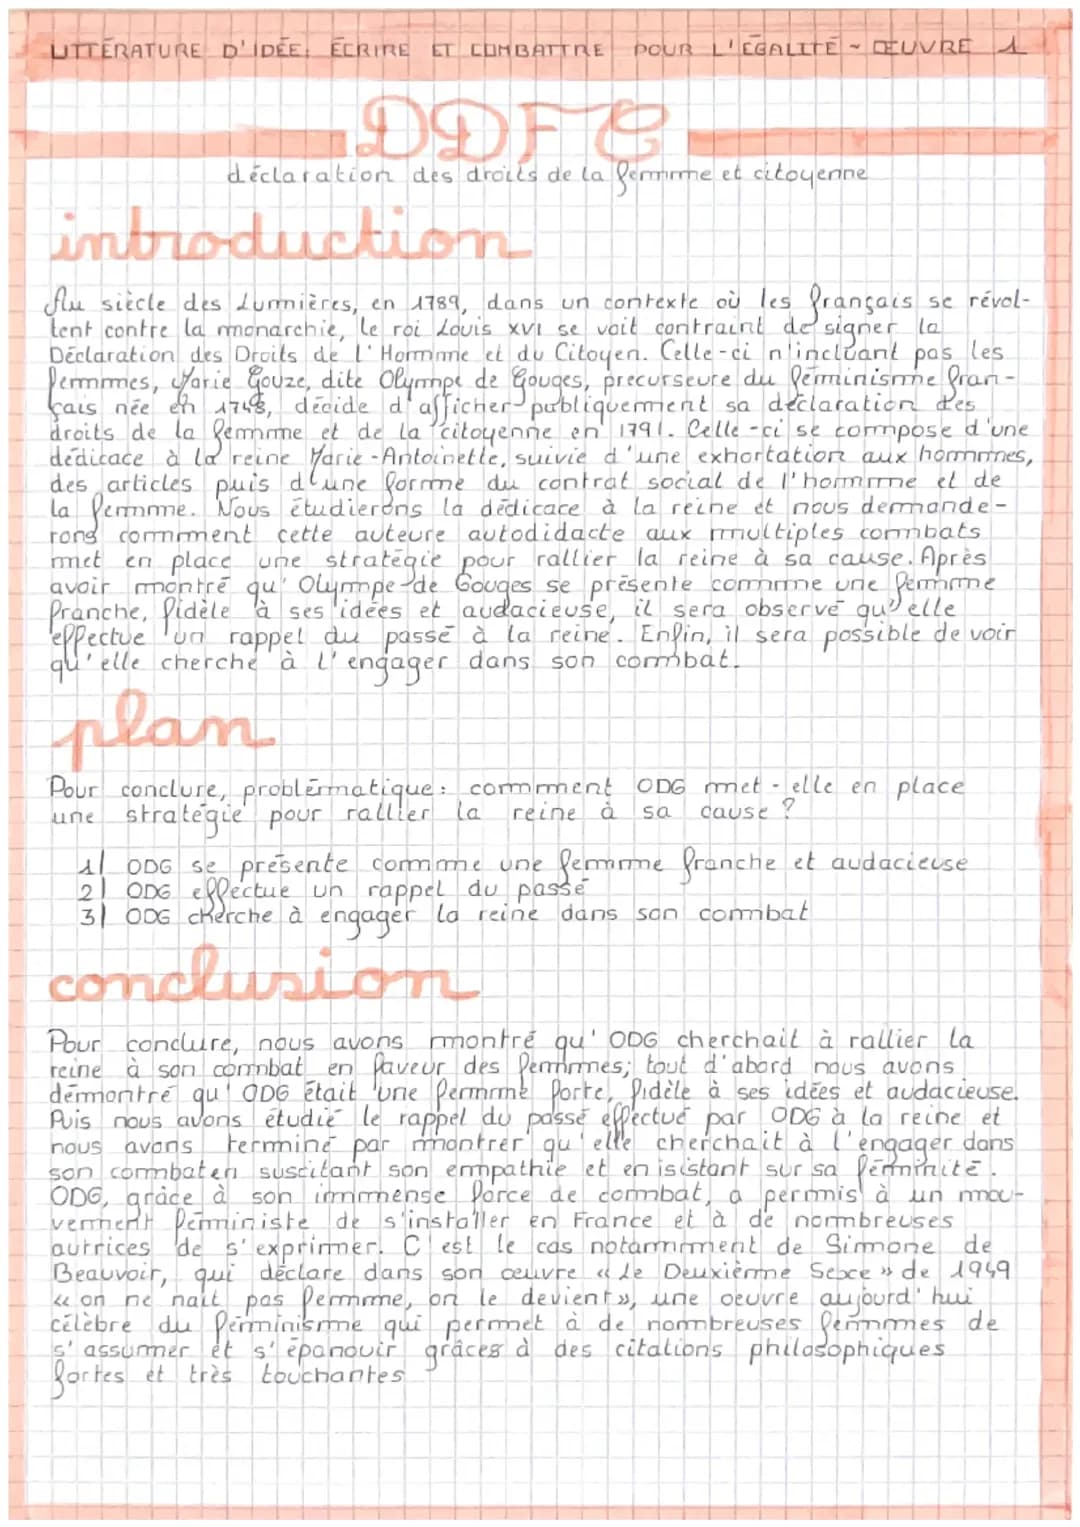 LITTÉRATURE D'IDÉE: ÉCRIRE ET COMBATTRE POUR L'ÉGALITÉ ~ ŒUVRE 1
DDFC
déclaration des droits de la femme et citoyenne
introduction
Au siècle des Lumières, en 1789, dans un contexte où les français se révol-
tent contre la monarchie, le roi Louis XVI se voit contraint de signer la
Déclaration des Droits de l'Homme et du Citoyen. Celle-ci n'incluant pas les
femmes, Marie Gouze, dite Olympe de Gouges, precurseure du féminisme fran-
çais née en 1748, décide d'afficher publiquement sa déclaration des
droits de la femme et de la citoyenne en 1791. Celle-ci se compose d'une
dédicace à la reine Marie-Antoinette, suivie d'une exhortation aux hommes,
des articles puis d'une forme du contrat social de l'homme et de
la femme. Nous étudierons la dédicace à la reine et nous demande-
rons comment cette auteure autodidacte aux multiples combats
met en place une stratégie pour rallier la reine à sa cause. Après
avoir montré qu'Olympe de Gouges se présente comme une femme
franche, fidèle à ses idées et audacieuse, il sera observé qu'elle
effectue un rappel du passé à la reine. Enfin, il sera possible de voir
qu'elle cherche à l'engager dans son combat.
plan
Pour conclure, problématique: comment ODG met-elle en place
une stratégie pour rallier la reine à sa cause ?
1/ ODG se présente comme une femme franche et audacieuse
2/ ODG effectue un rappel du passé
3/ ODG cherche à engager la reine dans son combat
conclusion
Pour conclure, nous avons montré qu'ODG cherchait à rallier la
reine à son combat en faveur des femmes; tout d'abord nous avons
démontré qu'ODG était une femme forte, fidèle à ses idées et audacieuse.
Puis nous avons étudié le rappel du passé effectué par ODG à la reine et
nous avons terminé par montrer qu'elle cherchait à l'engager dans
son combat en suscitant son empathie et en isistant sur sa féminité.
ODG, grâce à son immense force de combat, a permis à un mou-
vement féministe de s'installer en France et à de nombreuses
autrices de s'exprimer. C'est le cas notamment de Simone de
Beauvoir, qui déclare dans son œuvre « Le Deuxième Sexe » de 1949
« on ne nait pas femme, on le devient», une oeuvre aujourd'hui
célèbre du féminisme qui permet à de nombreuses femmes de
s'assumer et s'épanouir grâces à des citations philosophiques
fortes et très touchantes